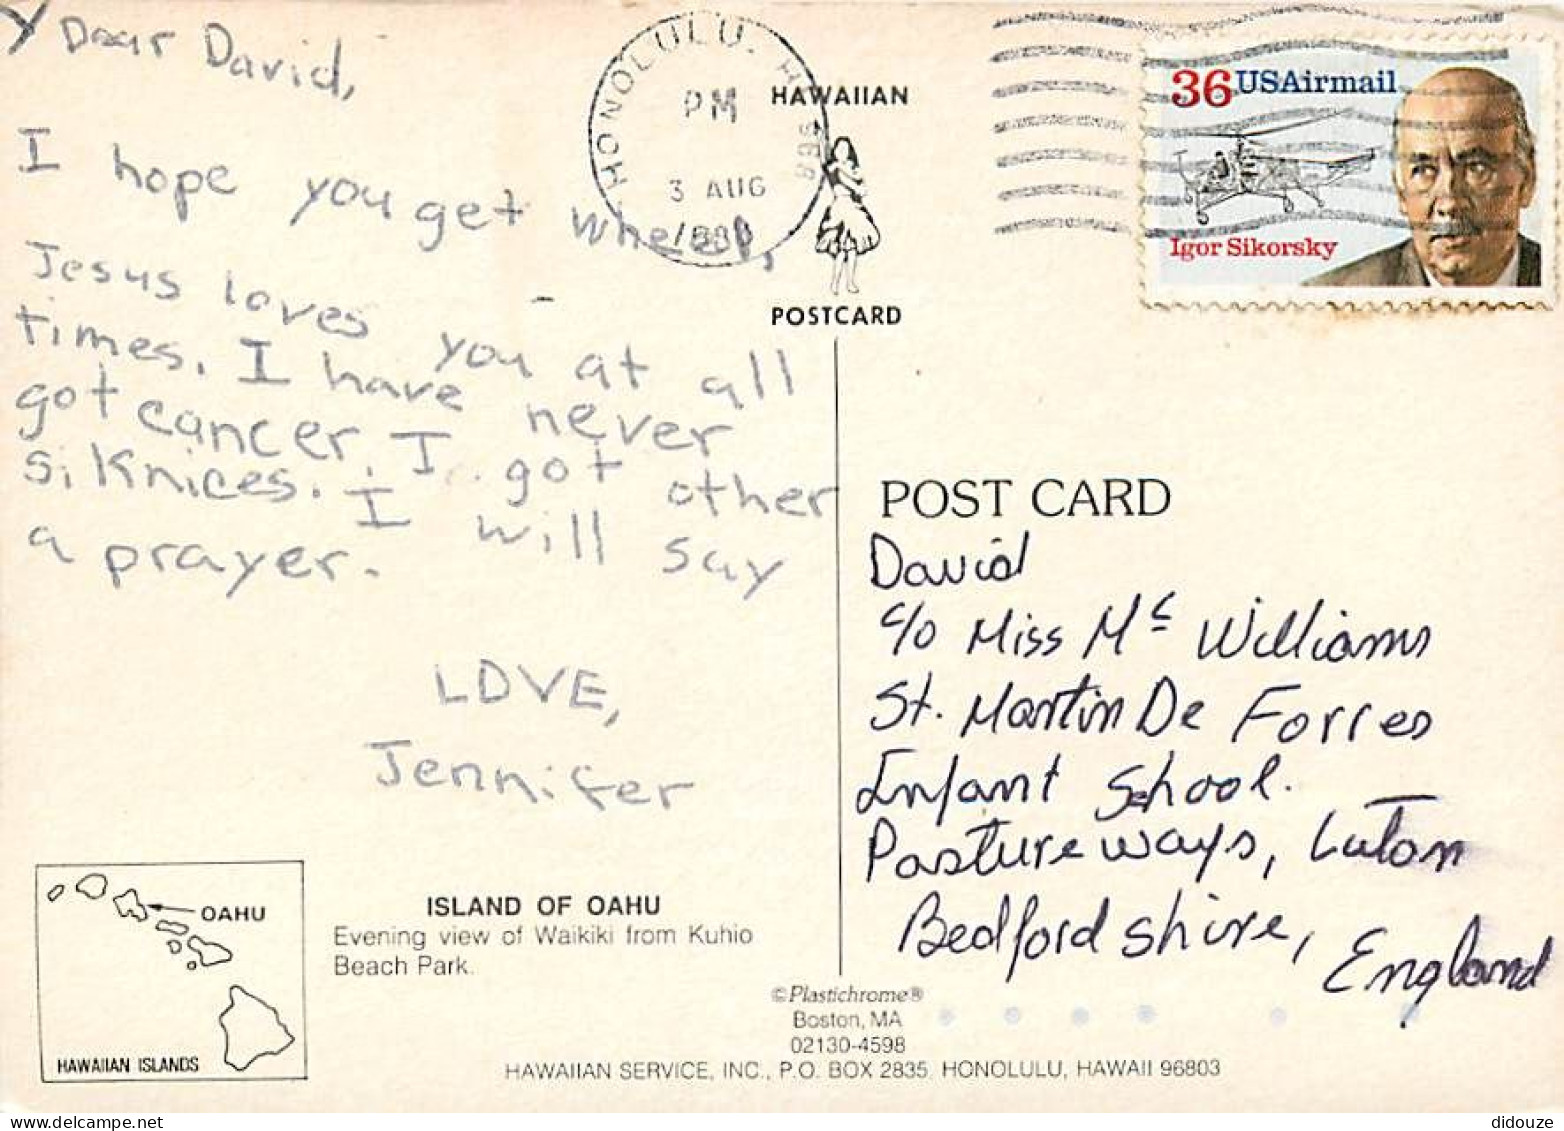 Dear David,
I hope you get wheell,
Jesus loves you at all
times. I have never
got cancer. I got other
siknices. I will say
a prayer.
LOVE,
Jennifer
HONOLULU, HI 968
PM
3 AUG
HAWAIIAN
POSTCARD
36 USAirmail
Igor Sikorsky
POST CARD
David
c/o Miss Mc Williams
St. Martin De Forres
Infant School.
Pastureways, Luton
Bedfordshire,
England
OAHU
HAWAIIAN ISLANDS
ISLAND OF OAHU
Evening view of Waikiki from Kuhio
Beach Park.
©Plastichrome®
Boston, MA
02130-4598
HAWAIIAN SERVICE, INC., P.O. BOX 2835, HONOLULU, HAWAII 96803
didouze